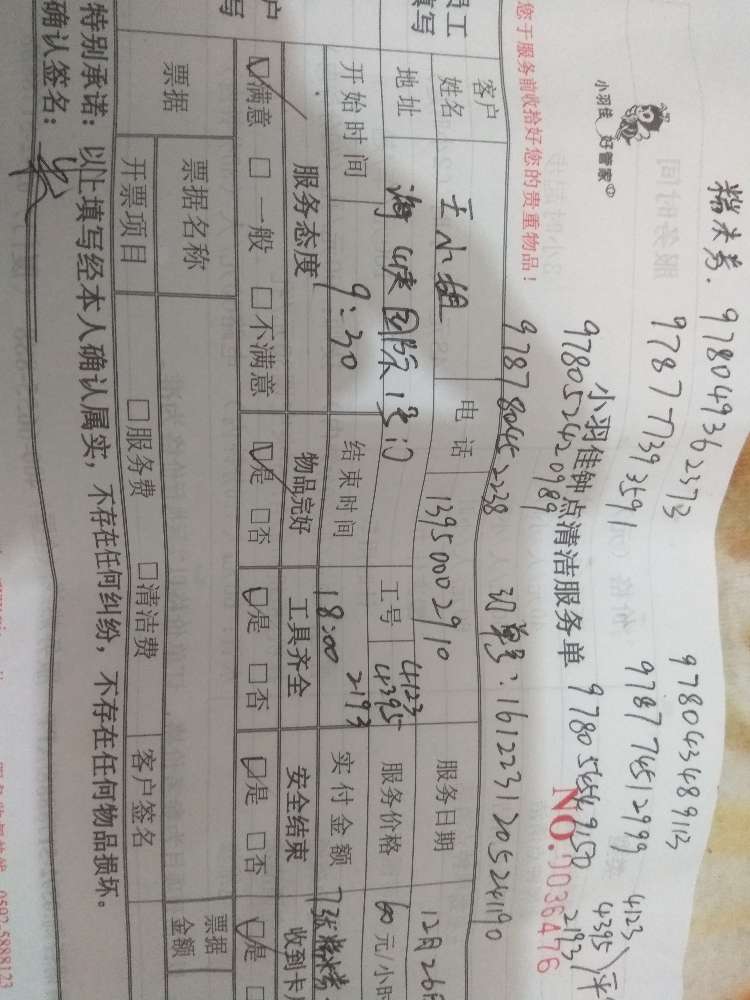 糯米券. 978049362373 9780434899113
978777393591 978774512999 4123
978052420989 978056549150 4395 平
978780452238 2193
小羽佳 好管家
小羽佳钟点清洁服务单
NO.0036476
您于服务前收拾好您的贵重物品!
订单号:1612231205241190
客户
姓名 王小姐 电话 13950002910 服务日期 12月26
地址 海峡国际1号 工号 4123 4395 2193 服务价格 60元/小时
开始时间 9:30 结束时间 18:00 实付金额 7张糯米券
服务态度 物品完好 工具齐全 安全结束 收到卡
☑满意 □一般 □不满意 ☑是 □否 ☑是 □否 ☑是 □否 ☑是
员工
填写
户
写
票据 票据名称 票据
金额
开票项目 □服务费 □清洁费 客户签名
特别承诺:以上填写经本人确认属实,不存在任何纠纷,不存在任何物品损坏。
确认签名:
0592-5888123